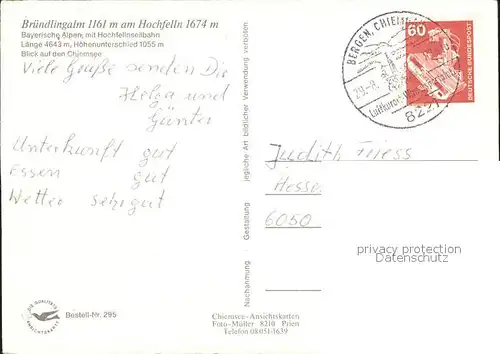 Bründlingalm 1161 m am Hochfelln 1674 m
Bayerische Alpen, mit Hochfellnseilbahn
Länge 4643 m, Höhenunterschied 1055 m
Blick auf den Chiemsee
Viele Grüße senden Dir
Helga und
Günter
Unterkunft gut
Essen gut
Wetter sehr gut
Bestell-Nr. 295
Chiemsee-Ansichtskarten
Foto-Müller 8210 Prien
Telefon 08051-1639
Nachahmung · Gestaltung · jegliche Art bildlicher Verwendung verboten.
BERGEN, CHIEMGAU
Luftkurort
60
DEUTSCHE BUNDESPOST
Judith Friess
Hesse
6050
privacy protection
watermark